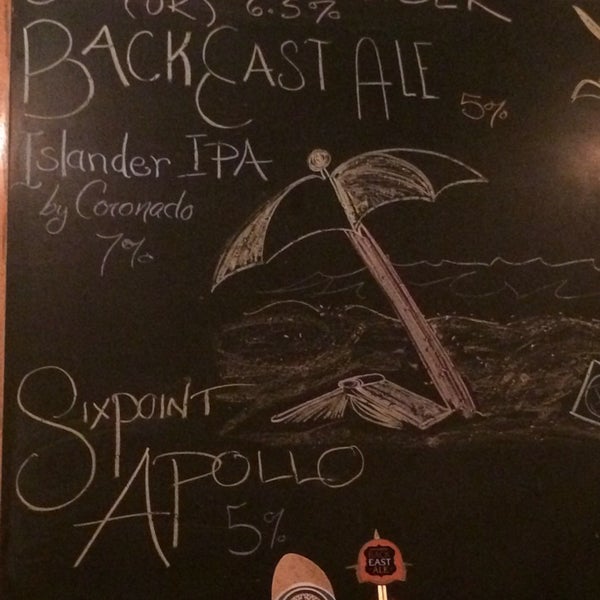 (OR) 6.5%
BACK EAST ALE
5%
Islander IPA
by Coronado
7%
SIXPOINT
APOLLO
5%
BACK
EAST
ALE